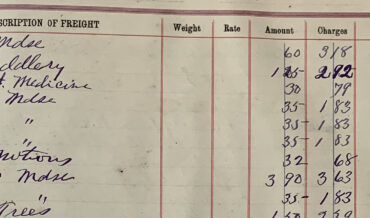 SCRIPTION OF FREIGHT Weight Rate Amount Charges
Mdse 60 318
ddlery 292
Medicine 30 79
Mdse 35 1 83
" 35 1 83
" 35 1 83
otions 32 68
Mdse 3 90 3 63
35 1 83
Trees